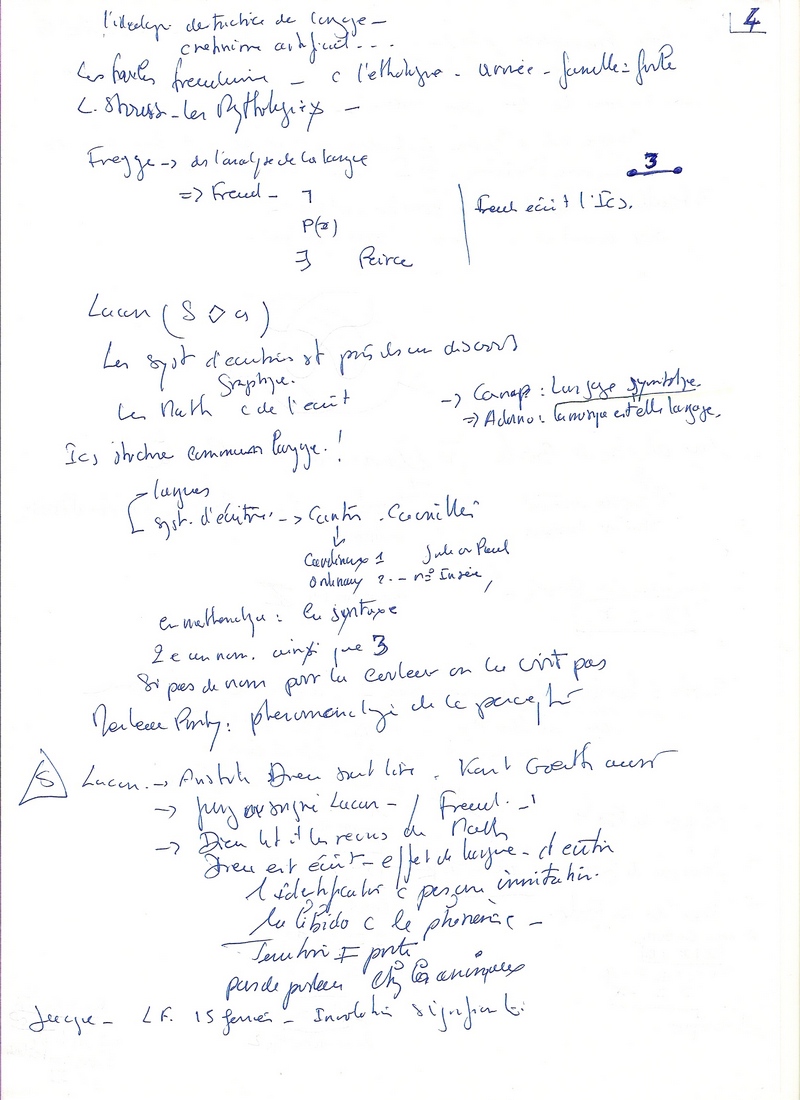 4
l'idéologie destructrice de langage –
crétinisme artificiel...
Les freudienne – c l'éthologie – année – famille = forte
L. Strauss – les Mythologiq
Fregge → de l'analyse de la langue
3
⇒ Freud – ⁊
Freud écrit l'Ics.
P(x)
∃ Peirce
Lacan (S ◇ a)
Les syst d'écritures st pris ds un discours
graphique.
Les Math c de l'écrit
→ Carnap : Langage symbolique.
⇒ Adorno : la musique est elle langage.
Ics structure comme un langage !
– langues
syst. d'écriture → Cantor
↓
Cardinaux 1 Jules ou Paul
Ordinaux 2 – n° Insée,
en mathématique : la syntaxe
2 e un nom. ainsi que 3
Si pas de nom pour la couleur on la voit pas
Merleau Ponty : phénoménologie de la perception
S Lacan → Aristote Dieu sait lire. Kant Goethe aussi
→ Lacan – / Freud. –
→ Dieu lit il les revues de Math
Dieu est écrit – effet de langue – d'écriture
l'identification c pas une imitation.
la libido c le phonème –
≠ porte
pas de porteur chez les
Jacques – L F. 15 février – signifiante